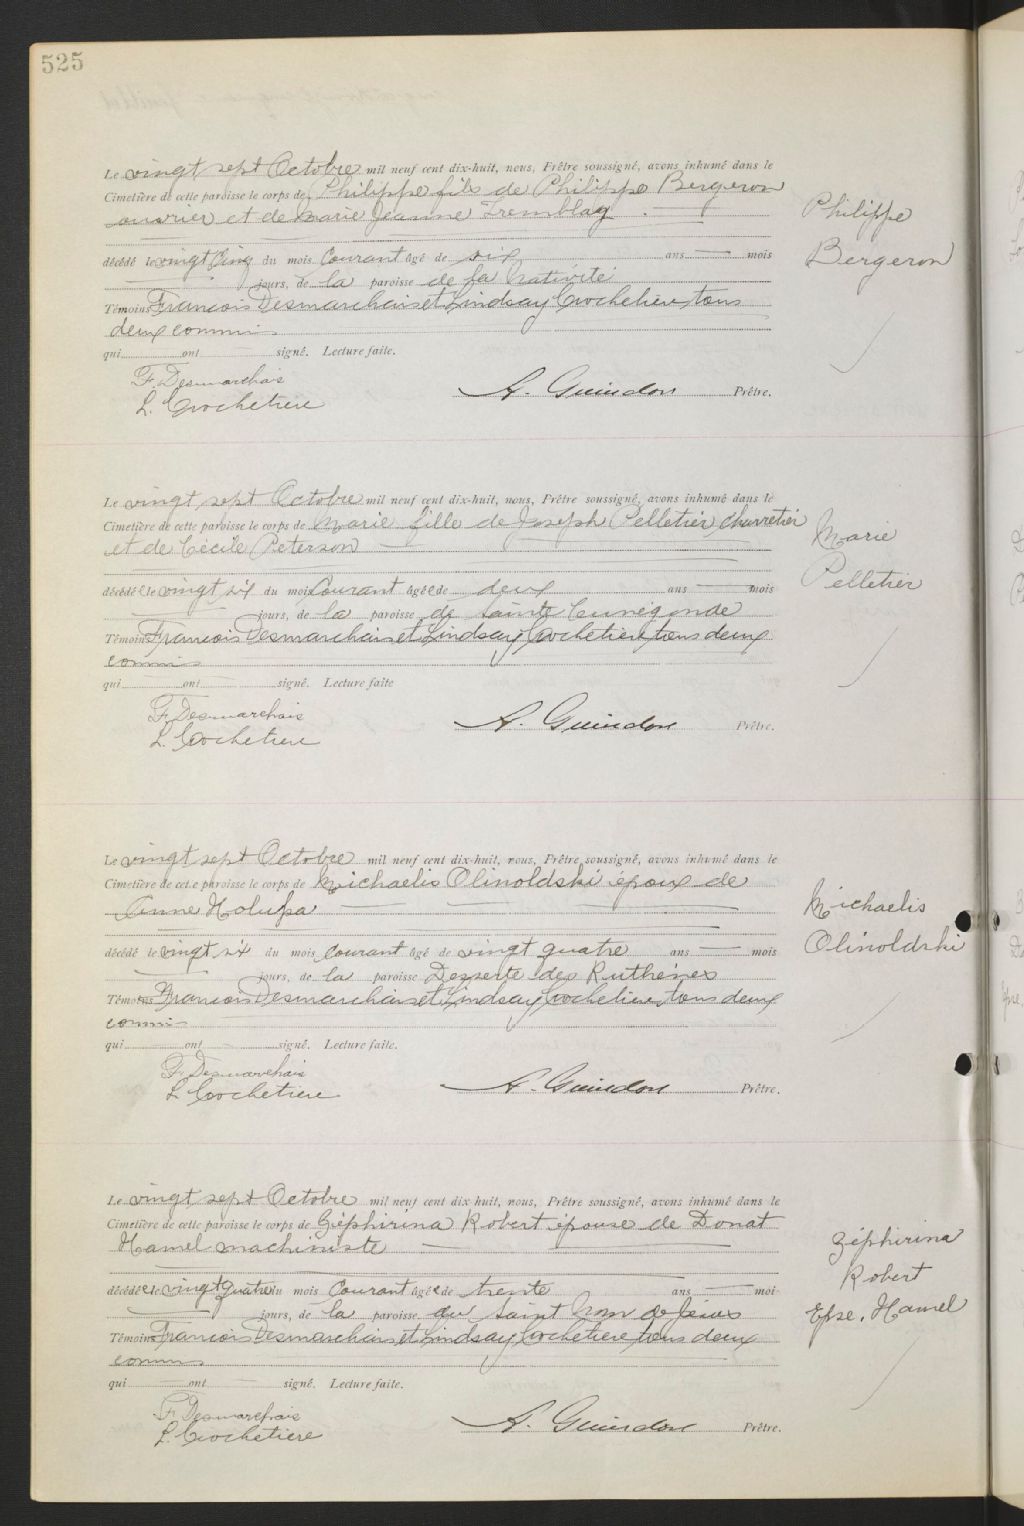 525
Le vingt sept Octobre mil neuf cent dix-huit, nous, Prêtre soussigné, avons inhumé dans le
Cimetière de cette paroisse le corps de Philippe fils de Philippe Bergeron
ouvrier et de Marie Jeanne Tremblay.
décédé le vingt cinq du mois Courant âgé de six ans mois
jours, de la paroisse de la Nativité
Témoins François Desmarchais et Lindsay Crochetière tous
deux commis
qui ont signé. Lecture faite.
F. Desmarchais
L. Crochetiere
A. Guindon Prêtre.
Philippe
Bergeron
Le vingt sept Octobre mil neuf cent dix-huit, nous, Prêtre soussigné, avons inhumé dans le
Cimetière de cette paroisse le corps de Marie fille de Joseph Pelletier charretier
et de Cécile Peterson
décédée le vingt six du mois Courant âgée de deux ans mois
jours, de la paroisse de Sainte Cunégonde
Témoins François Desmarchais et Lindsay Crochetiere tous deux
commis
qui ont signé. Lecture faite
F. Desmarchais
L. Crochetiere
A. Guindon Prêtre.
Marie
Pelletier
Le vingt sept Octobre mil neuf cent dix-huit, nous, Prêtre soussigné, avons inhumé dans le
Cimetière de cette paroisse le corps de Michaelis Olinoldski époux de
Anne Holupa
décédé le vingt six du mois courant âgé de vingt quatre ans mois
jours, de la paroisse Desserte des Ruthènes
Témoins François Desmarchais et Lindsay Crochetiere tous deux
commis
qui ont signé. Lecture faite.
F. Desmarchais
L. Crochetiere
A. Guindon Prêtre.
Michaelis
Olinoldski
Le vingt sept Octobre mil neuf cent dix-huit, nous, Prêtre soussigné, avons inhumé dans le
Cimetière de cette paroisse le corps de Zéphirina Robert épouse de Donat
Hamel machiniste
décédée le vingt quatre du mois Courant âgée de trente ans moi
jours, de la paroisse du Saint Nom de Jésus
Témoins François Desmarchais et Lindsay Crochetiere tous deux
commis
qui ont signé. Lecture faite.
F. Desmarchais
L. Crochetiere
A. Guindon Prêtre.
Zéphirina
Robert
Epse. Hamel